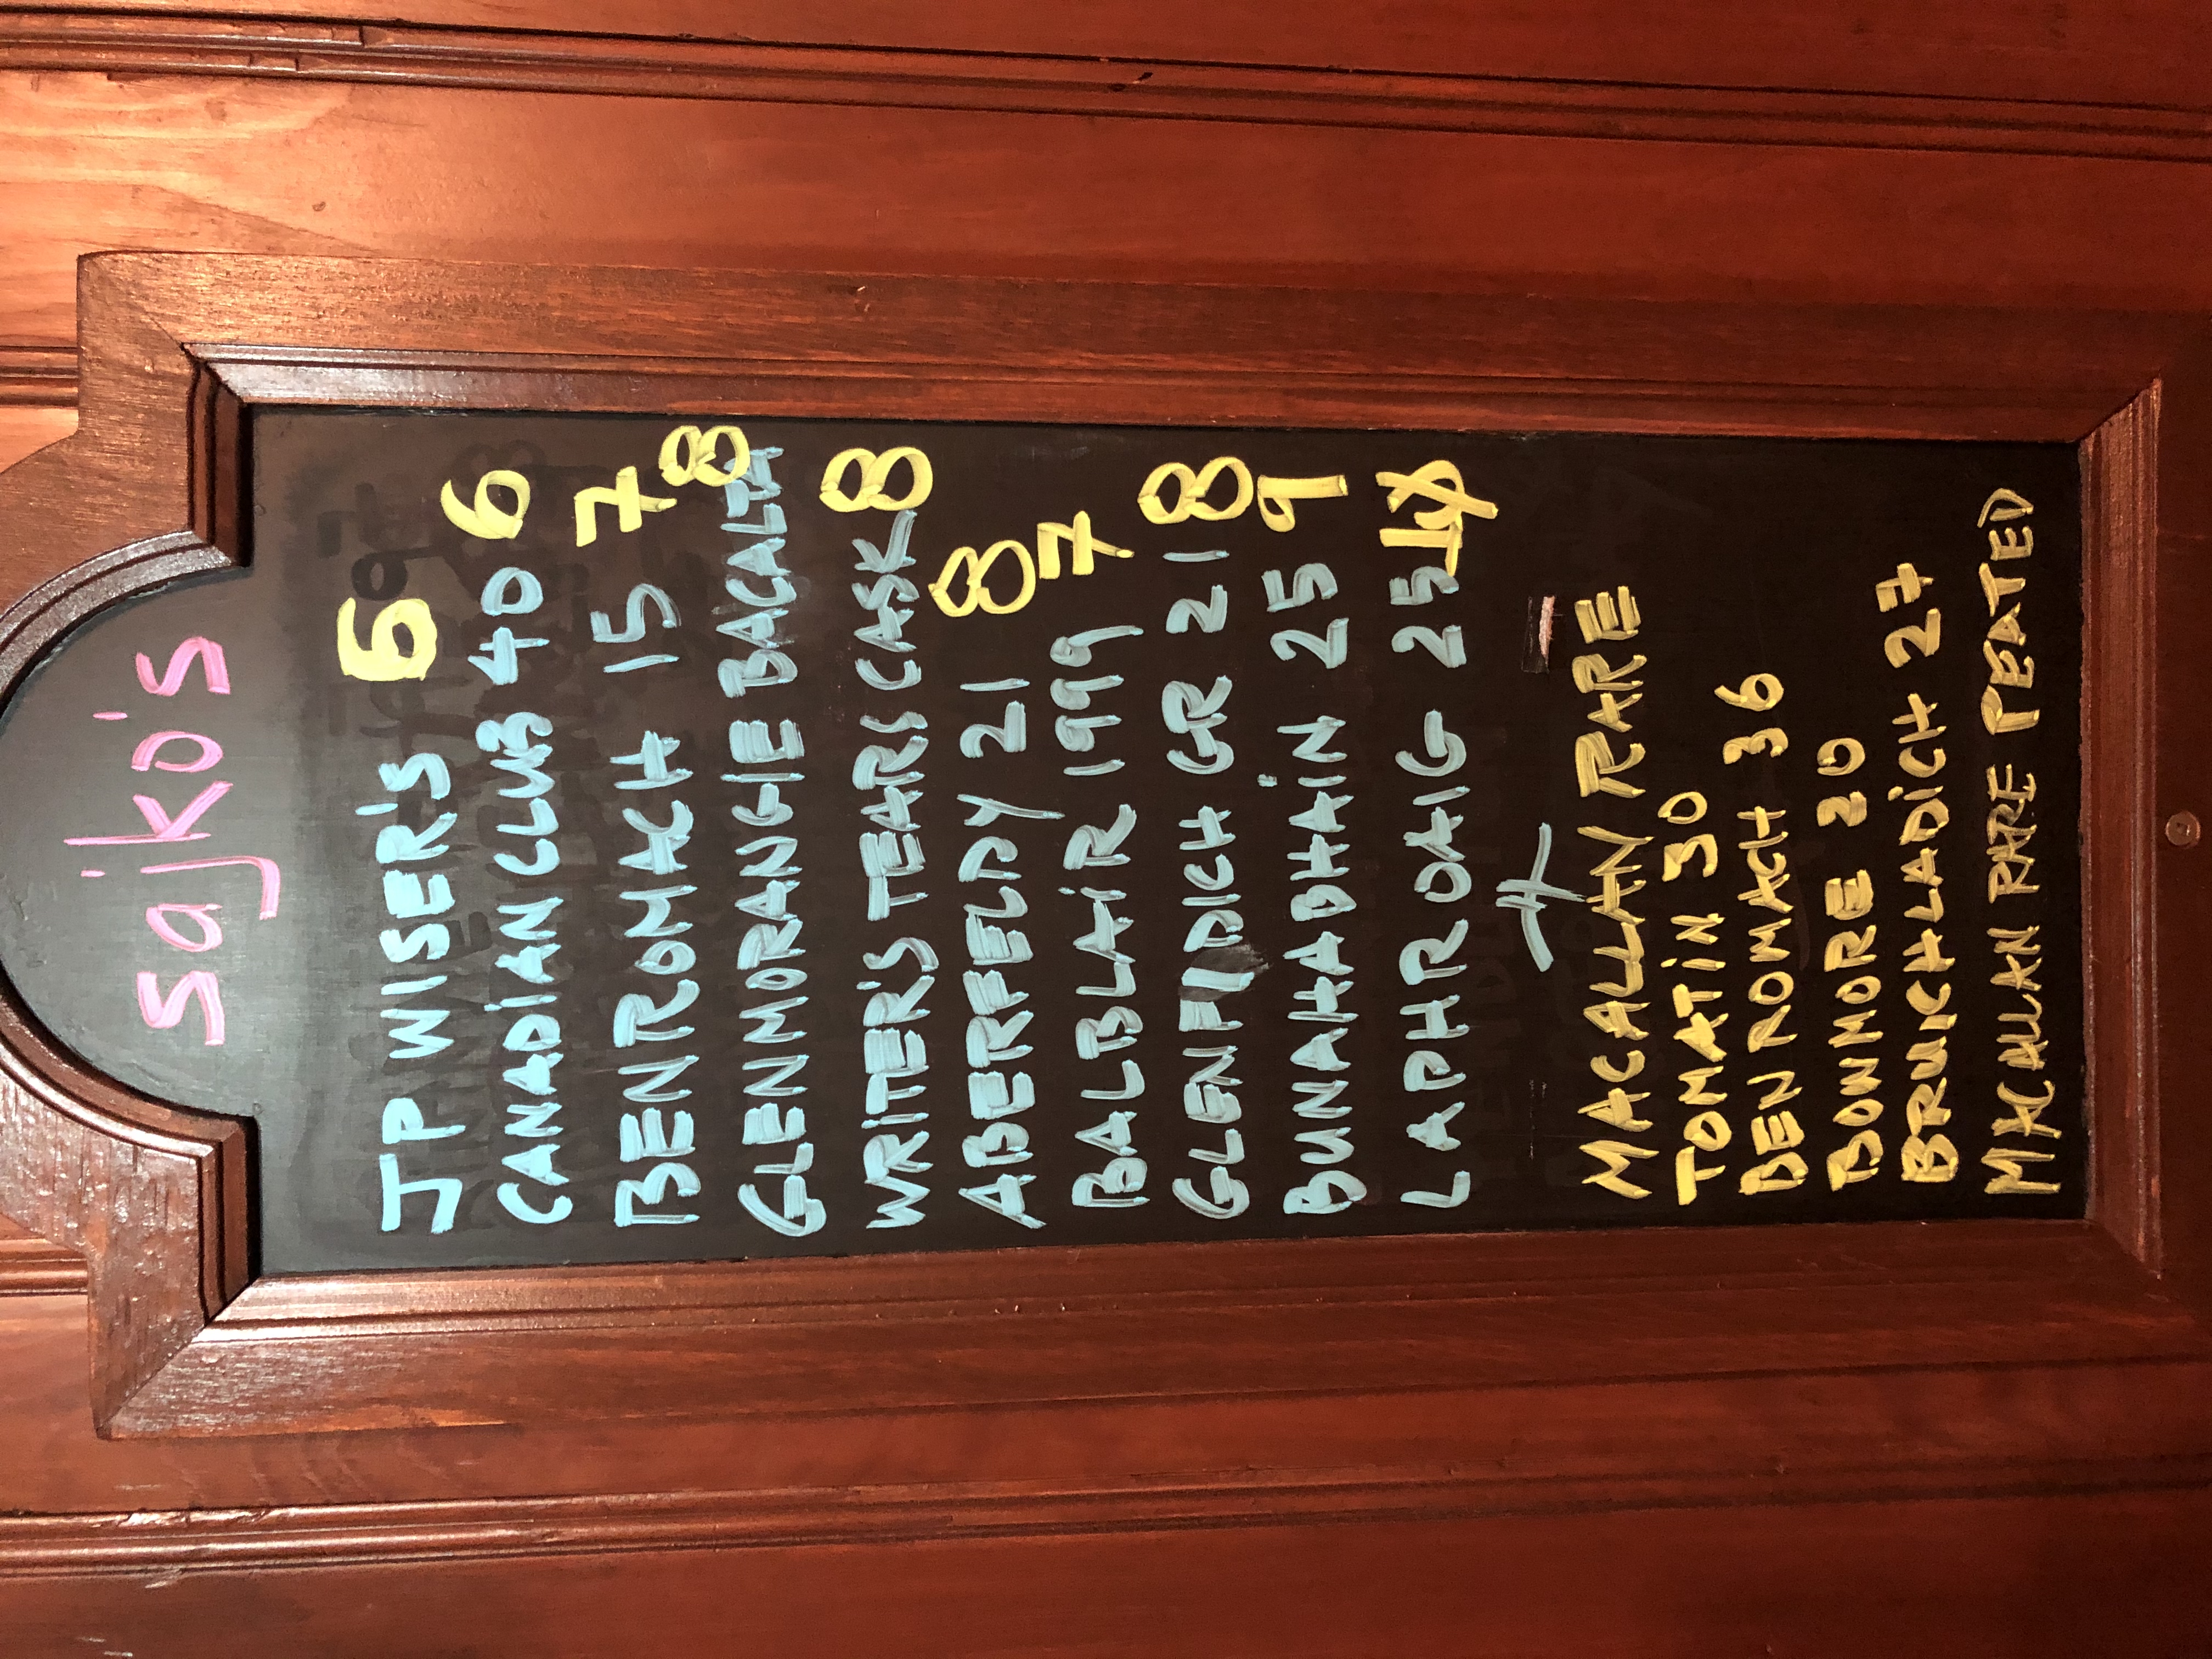 sajko's
JP WISER'S 6
CANADIAN CLUB 40 6
BENROMACH 15 7
GLENMORANGIE BACALTA 8
WRITER'S TEARS CASK 8
ABERFELDY 21 8
BALBLAIR 1999 7
GLENFIDICH GR 21 8
BUNAHABHAIN 25 9
LAPHROAIG 25
MACALLAN RARE
TOMATIN 30
BEN ROMACH 36
BOWMORE 20
BRUICHLADICH 27
MACALLAN RARE PEATED